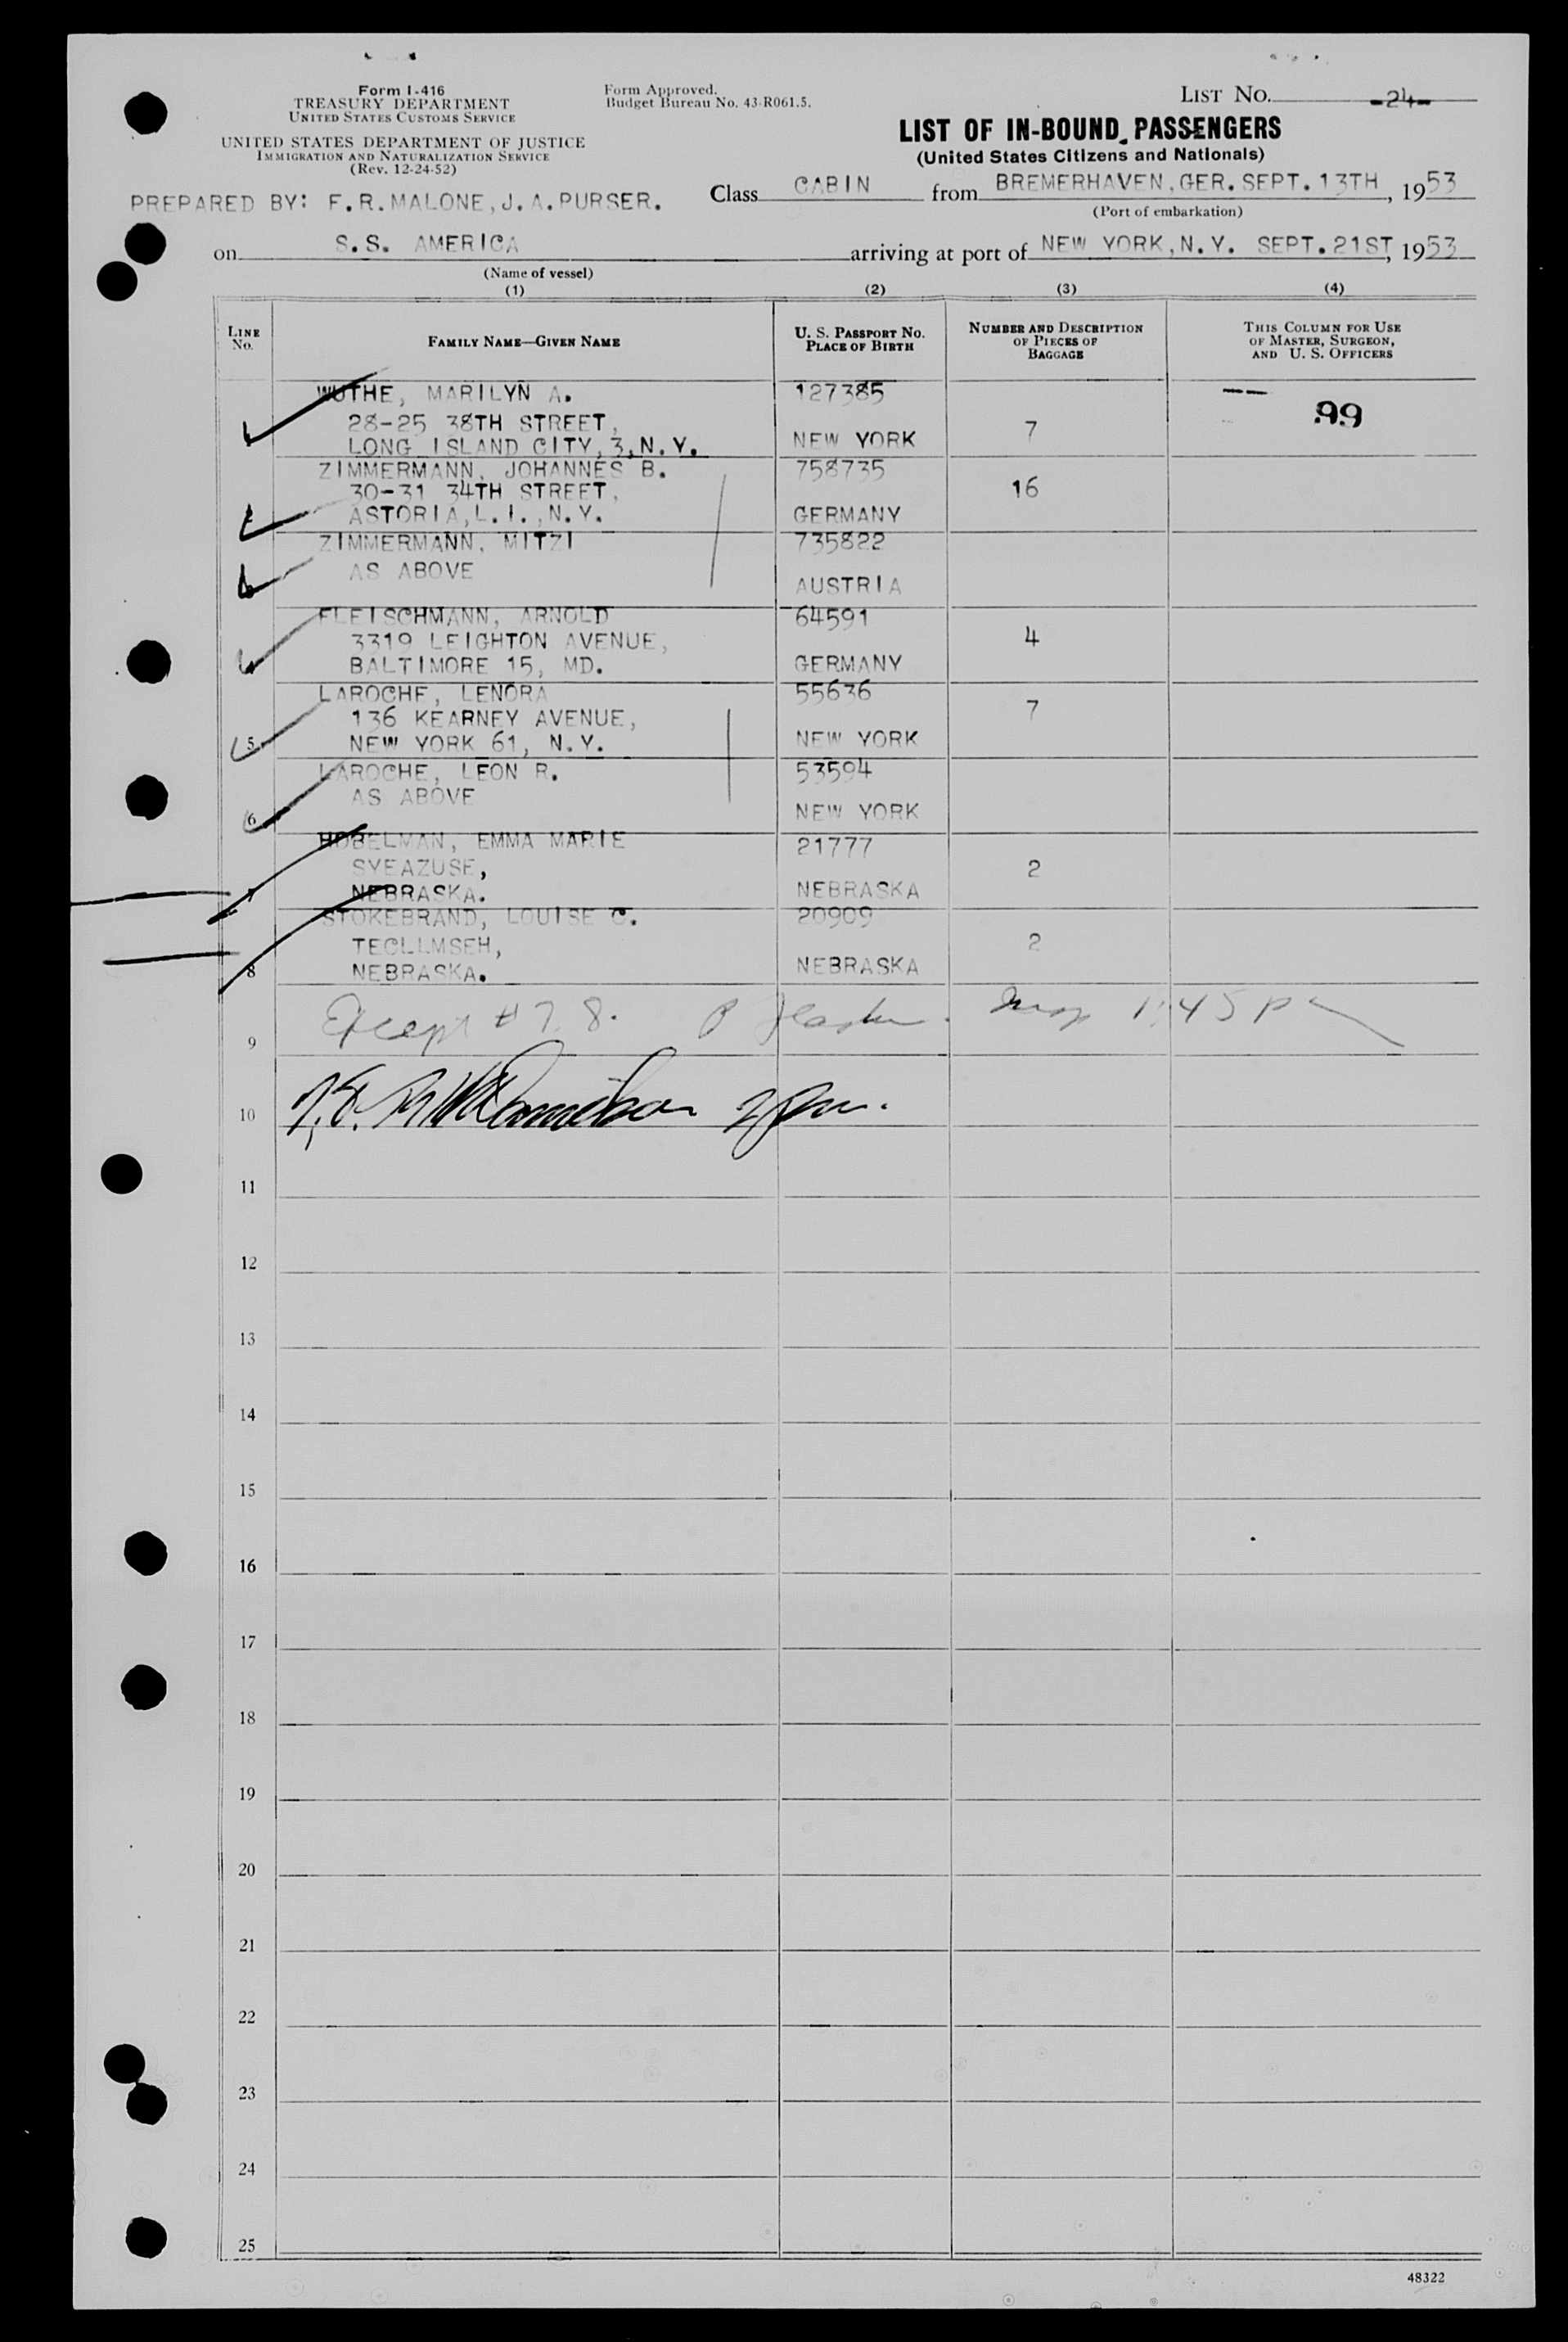 Form I-416
TREASURY DEPARTMENT
UNITED STATES CUSTOMS SERVICE
UNITED STATES DEPARTMENT OF JUSTICE
IMMIGRATION AND NATURALIZATION SERVICE
(Rev. 12-24-52)
Form Approved.
Budget Bureau No. 43-R061.5.
LIST NO. -24-
LIST OF IN-BOUND PASSENGERS
(United States Citizens and Nationals)
PREPARED BY: F.R.MALONE,J.A.PURSER.
Class CABIN from BREMERHAVEN,GER.SEPT.13TH, 1953
(Port of embarkation)
on S.S. AMERICA arriving at port of NEW YORK,N.Y. SEPT.21ST, 1953
(Name of vessel)
(1) (2) (3) (4)
LINE No.
FAMILY NAME—GIVEN NAME
U. S. PASSPORT NO.
PLACE OF BIRTH
NUMBER AND DESCRIPTION
OF PIECES OF
BAGGAGE
THIS COLUMN FOR USE
OF MASTER, SURGEON,
AND U. S. OFFICERS
WUTHE, MARILYN A. 127385
28-25 38TH STREET, 99
LONG ISLAND CITY,3,N.Y. NEW YORK 7
ZIMMERMANN, JOHANNES B. 758735
30-31 34TH STREET, 16
ASTORIA,L.I.,N.Y. GERMANY
ZIMMERMANN, MITZI 735822
AS ABOVE
AUSTRIA
FLEISCHMANN, ARNOLD 64591
3319 LEIGHTON AVENUE, 4
BALTIMORE 15, MD. GERMANY
LAROCHE, LENORA 55636
136 KEARNEY AVENUE, 7
5 NEW YORK 61, N.Y. NEW YORK
LAROCHE, LEON R. 53594
AS ABOVE
6 NEW YORK
HOBELMAN, EMMA MARIE 21777
SYEAZUSE, 2
7 NEBRASKA. NEBRASKA
STOKEBRAND, LOUISE C. 20909
TECLLMSEH, 2
8 NEBRASKA. NEBRASKA
Except #7.8. 1:45 P
9
10 2 pm.
11
12
13
14
15
16
17
18
19
20
21
22
23
24
25
48322